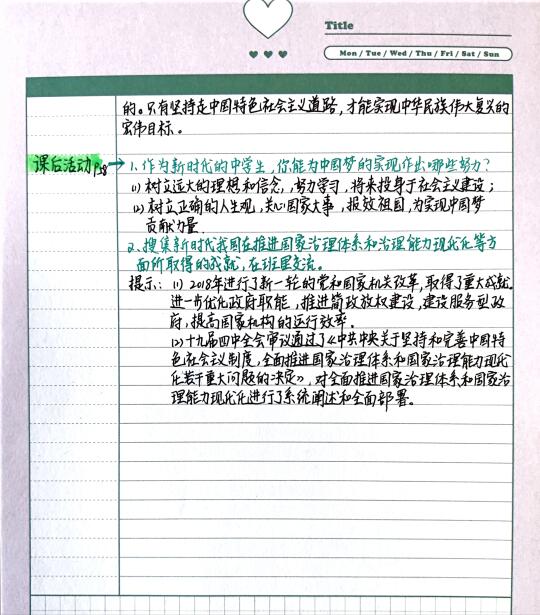 Title
Mon / Tue / Wed / Thu / Fri / Sat / Sun
的。只有坚持走中国特色社会主义道路，才能实现中华民族伟大复兴的
宏伟目标。
课后活动 P58
1、作为新时代的中学生，你能为中国梦的实现作出哪些努力？
(1) 树立远大的理想和信念，努力学习，将来投身于社会主义建设；
(2) 树立正确的人生观，关心国家大事，报效祖国，为实现中国梦
贡献力量.
2、搜集新时代我国在推进国家治理体系和治理能力现代化等方
面所取得的成就，在班里交流。
提示：(1) 2018年进行了新一轮的党和国家机关改革，取得了重大成就.
进一步优化政府职能，推进简政放权建设，建设服务型政
府，提高国家机构的运行效率.
(2)十九届四中全会审议通过了《中共中央关于坚持和完善中国特
色社会主义制度，全面推进国家治理体系和国家治理能力现代
化若干重大问题的决定》，对全面推进国家治理体系和国家治
理能力现代化进行了系统阐述和全面部署。